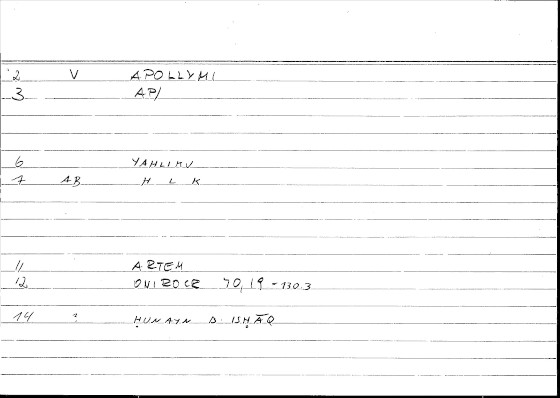 2 V APOLLYMI
3 AP/
6 YAHLIKU
7 AB H L K
11 ARTEM
12 ONIROCR 70,19-130.3
14 ? ḤUNAYN B ISḤĀQ